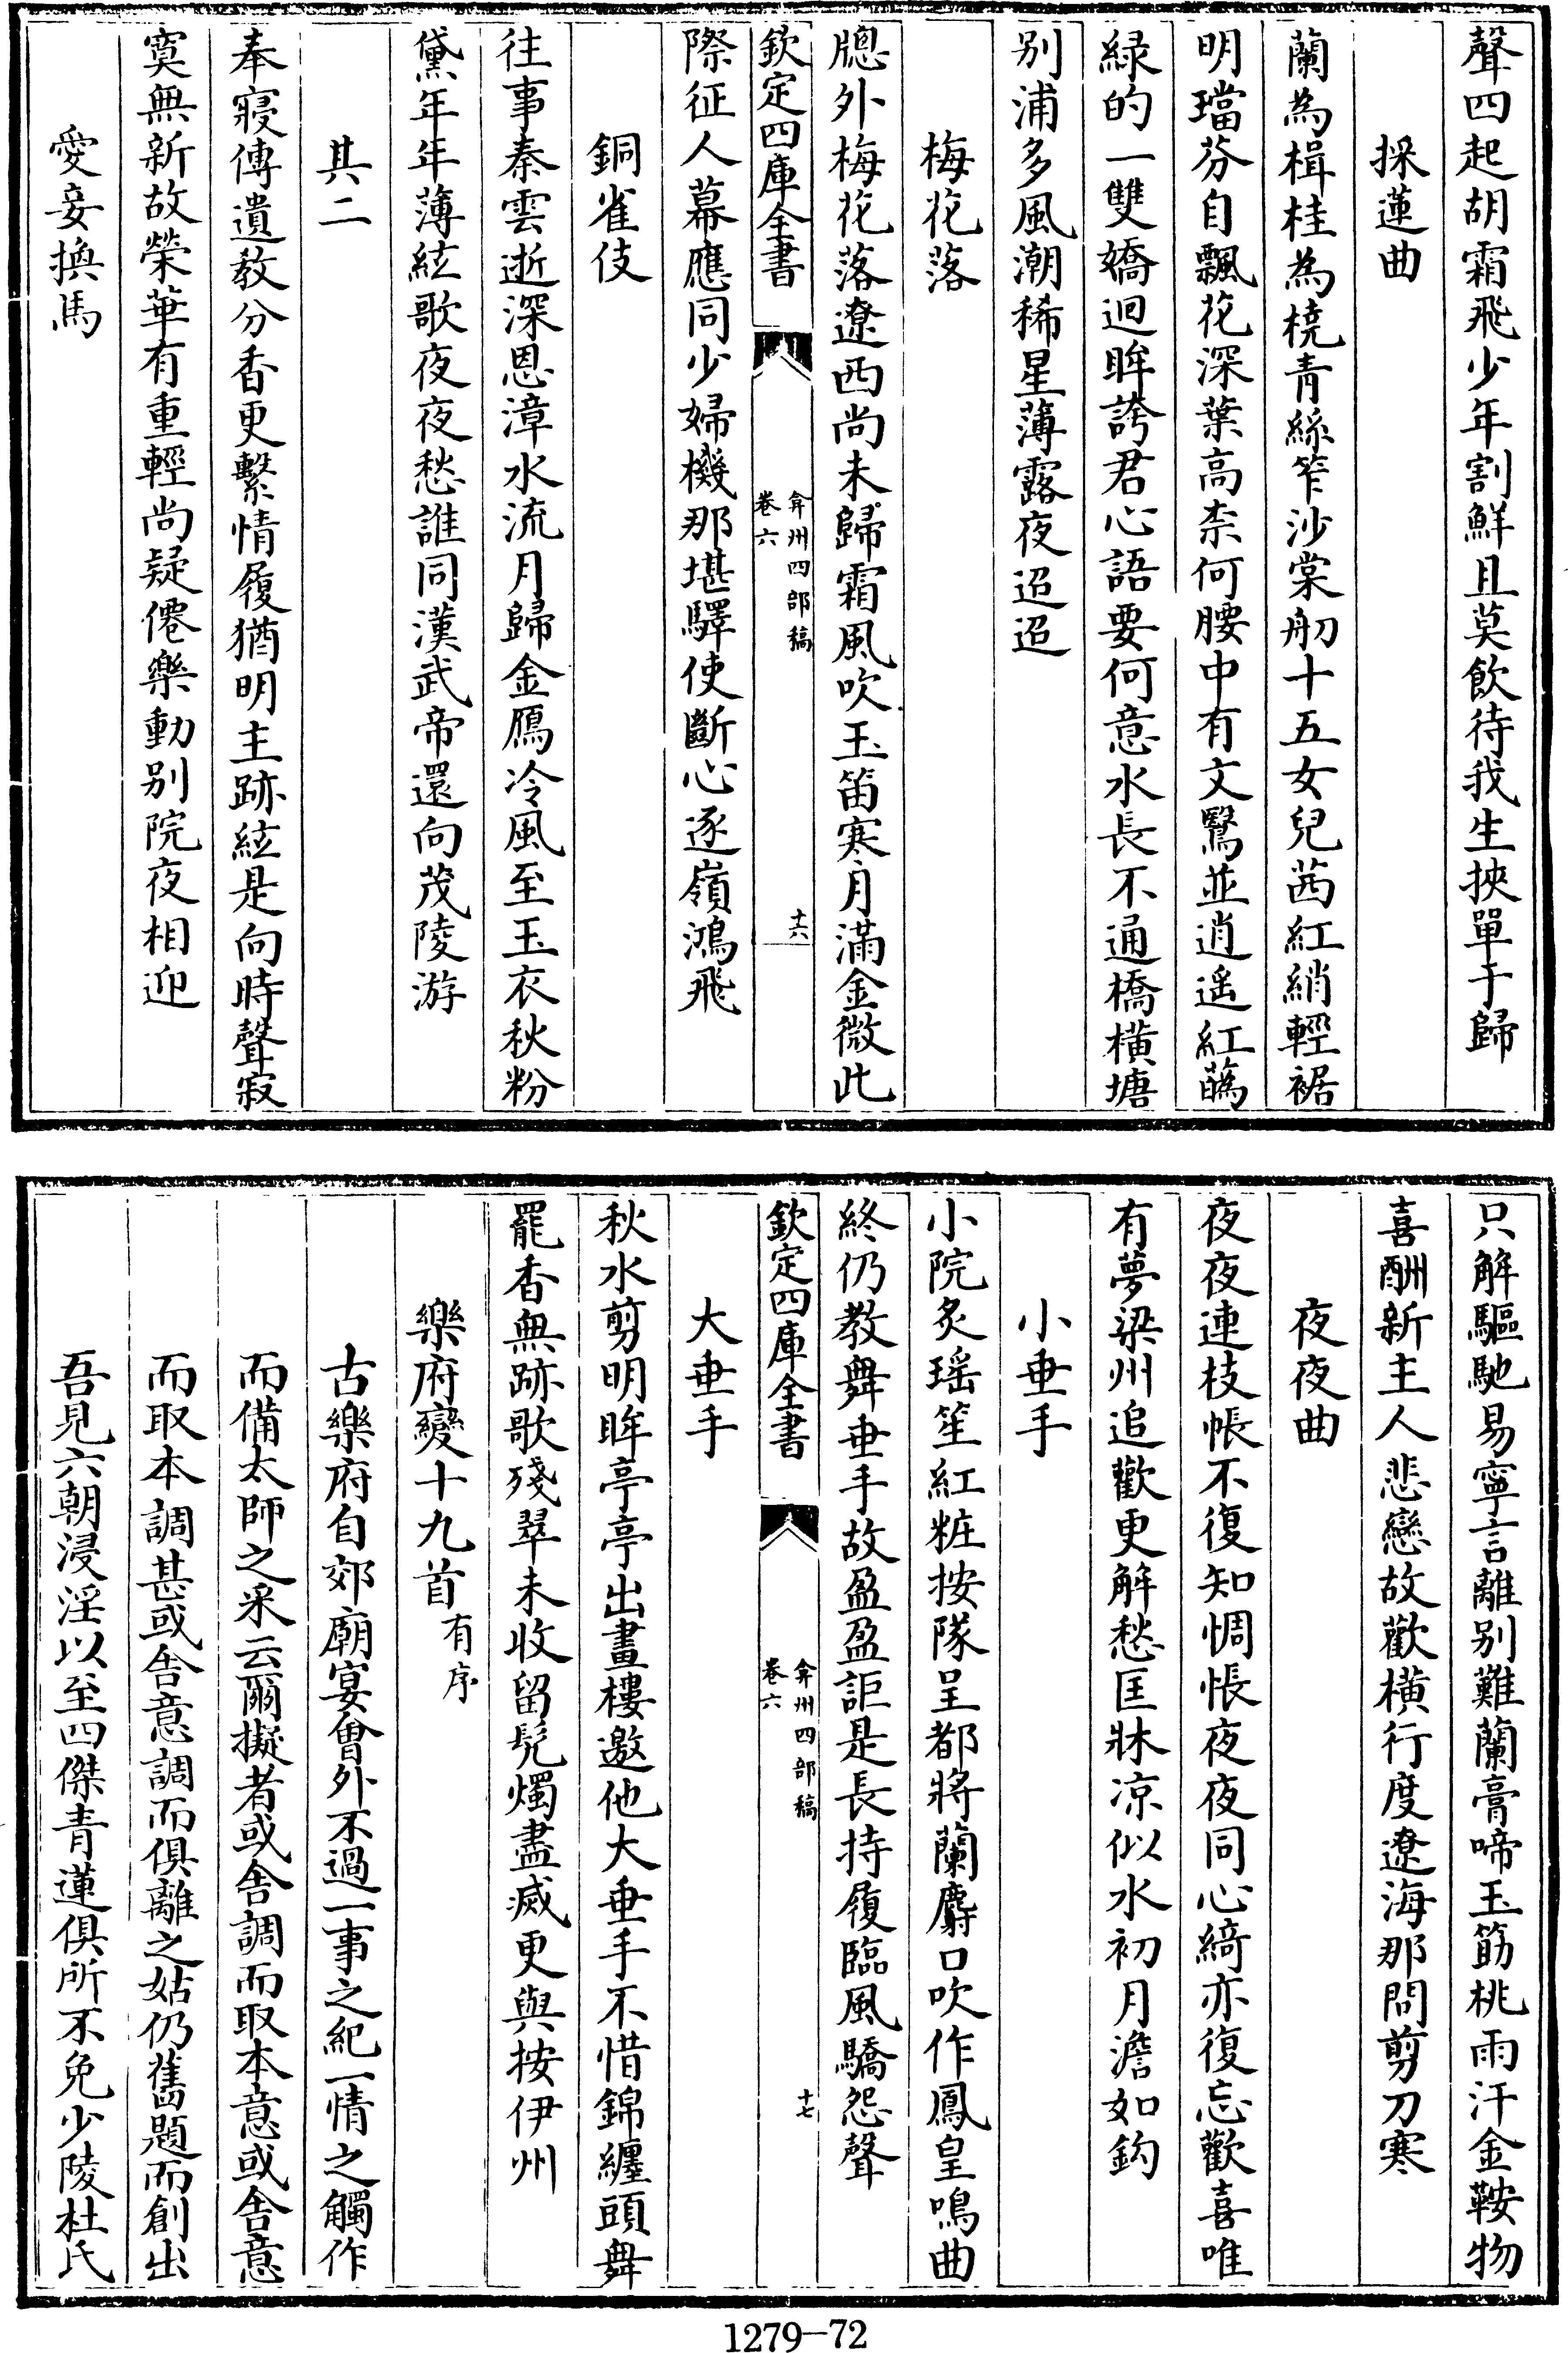 聲四起胡霜飛少年割鮮且莫飲待我生挾單于歸
採蓮曲
蘭為楫桂為橈青絲笮沙棠舠十五女兒茜紅綃輕裾
明璫芬自飄花深葉高柰何腰中有文鴛並逍遥紅蘤
緑的一雙嬌迴眸誇君心語要何意水長不通橋橫塘
别浦多風潮稀星薄露夜迢迢
梅花落
牎外梅花落遼西尚未歸霜風吹玉笛寒月滿金微此
欽定四庫全書
弇州四部稿
卷六
十六
際征人幕應同少婦機那堪驛使斷心逐嶺鴻飛
銅雀伎
往事秦雲逝深恩漳水流月歸金鴈冷風至玉衣秋粉
黛年年薄絃歌夜夜愁誰同漢武帝還向茂陵游
其二
奉寢傳遺教分香更繫情履猶明主跡絃是向時聲寂
寞無新故榮華有重輕尚疑僊樂動别院夜相迎
愛妾換馬
只解驅馳易寧言離别難蘭膏啼玉筯桃雨汗金鞍物
喜酬新主人悲戀故歡橫行度遼海那問剪刀寒
夜夜曲
夜夜連枝帳不復知惆悵夜夜同心綺亦復忘歡喜唯
有夢梁州追歡更解愁匡牀凉似水初月澹如鈎
小垂手
小院炙瑶笙紅粧按隊呈都將蘭麝口吹作鳳皇鳴曲
終仍教舞垂手故盈盈詎是長持履臨風驕怨聲
欽定四庫全書
弇州四部稿
卷六
十七
大垂手
秋水剪明眸亭亭出畫樓邀他大垂手不惜錦纏頭舞
罷香無跡歌殘翠未收留髠燭盡滅更與按伊州
樂府變十九首有序
古樂府自郊廟宴會外不過一事之紀一情之觸作
而備太師之采云爾擬者或舍調而取本意或舍意
而取本調甚或舍意調而俱離之姑仍舊題而創出
吾見六朝浸淫以至四傑青蓮俱所不免少陵杜氏
1279-72